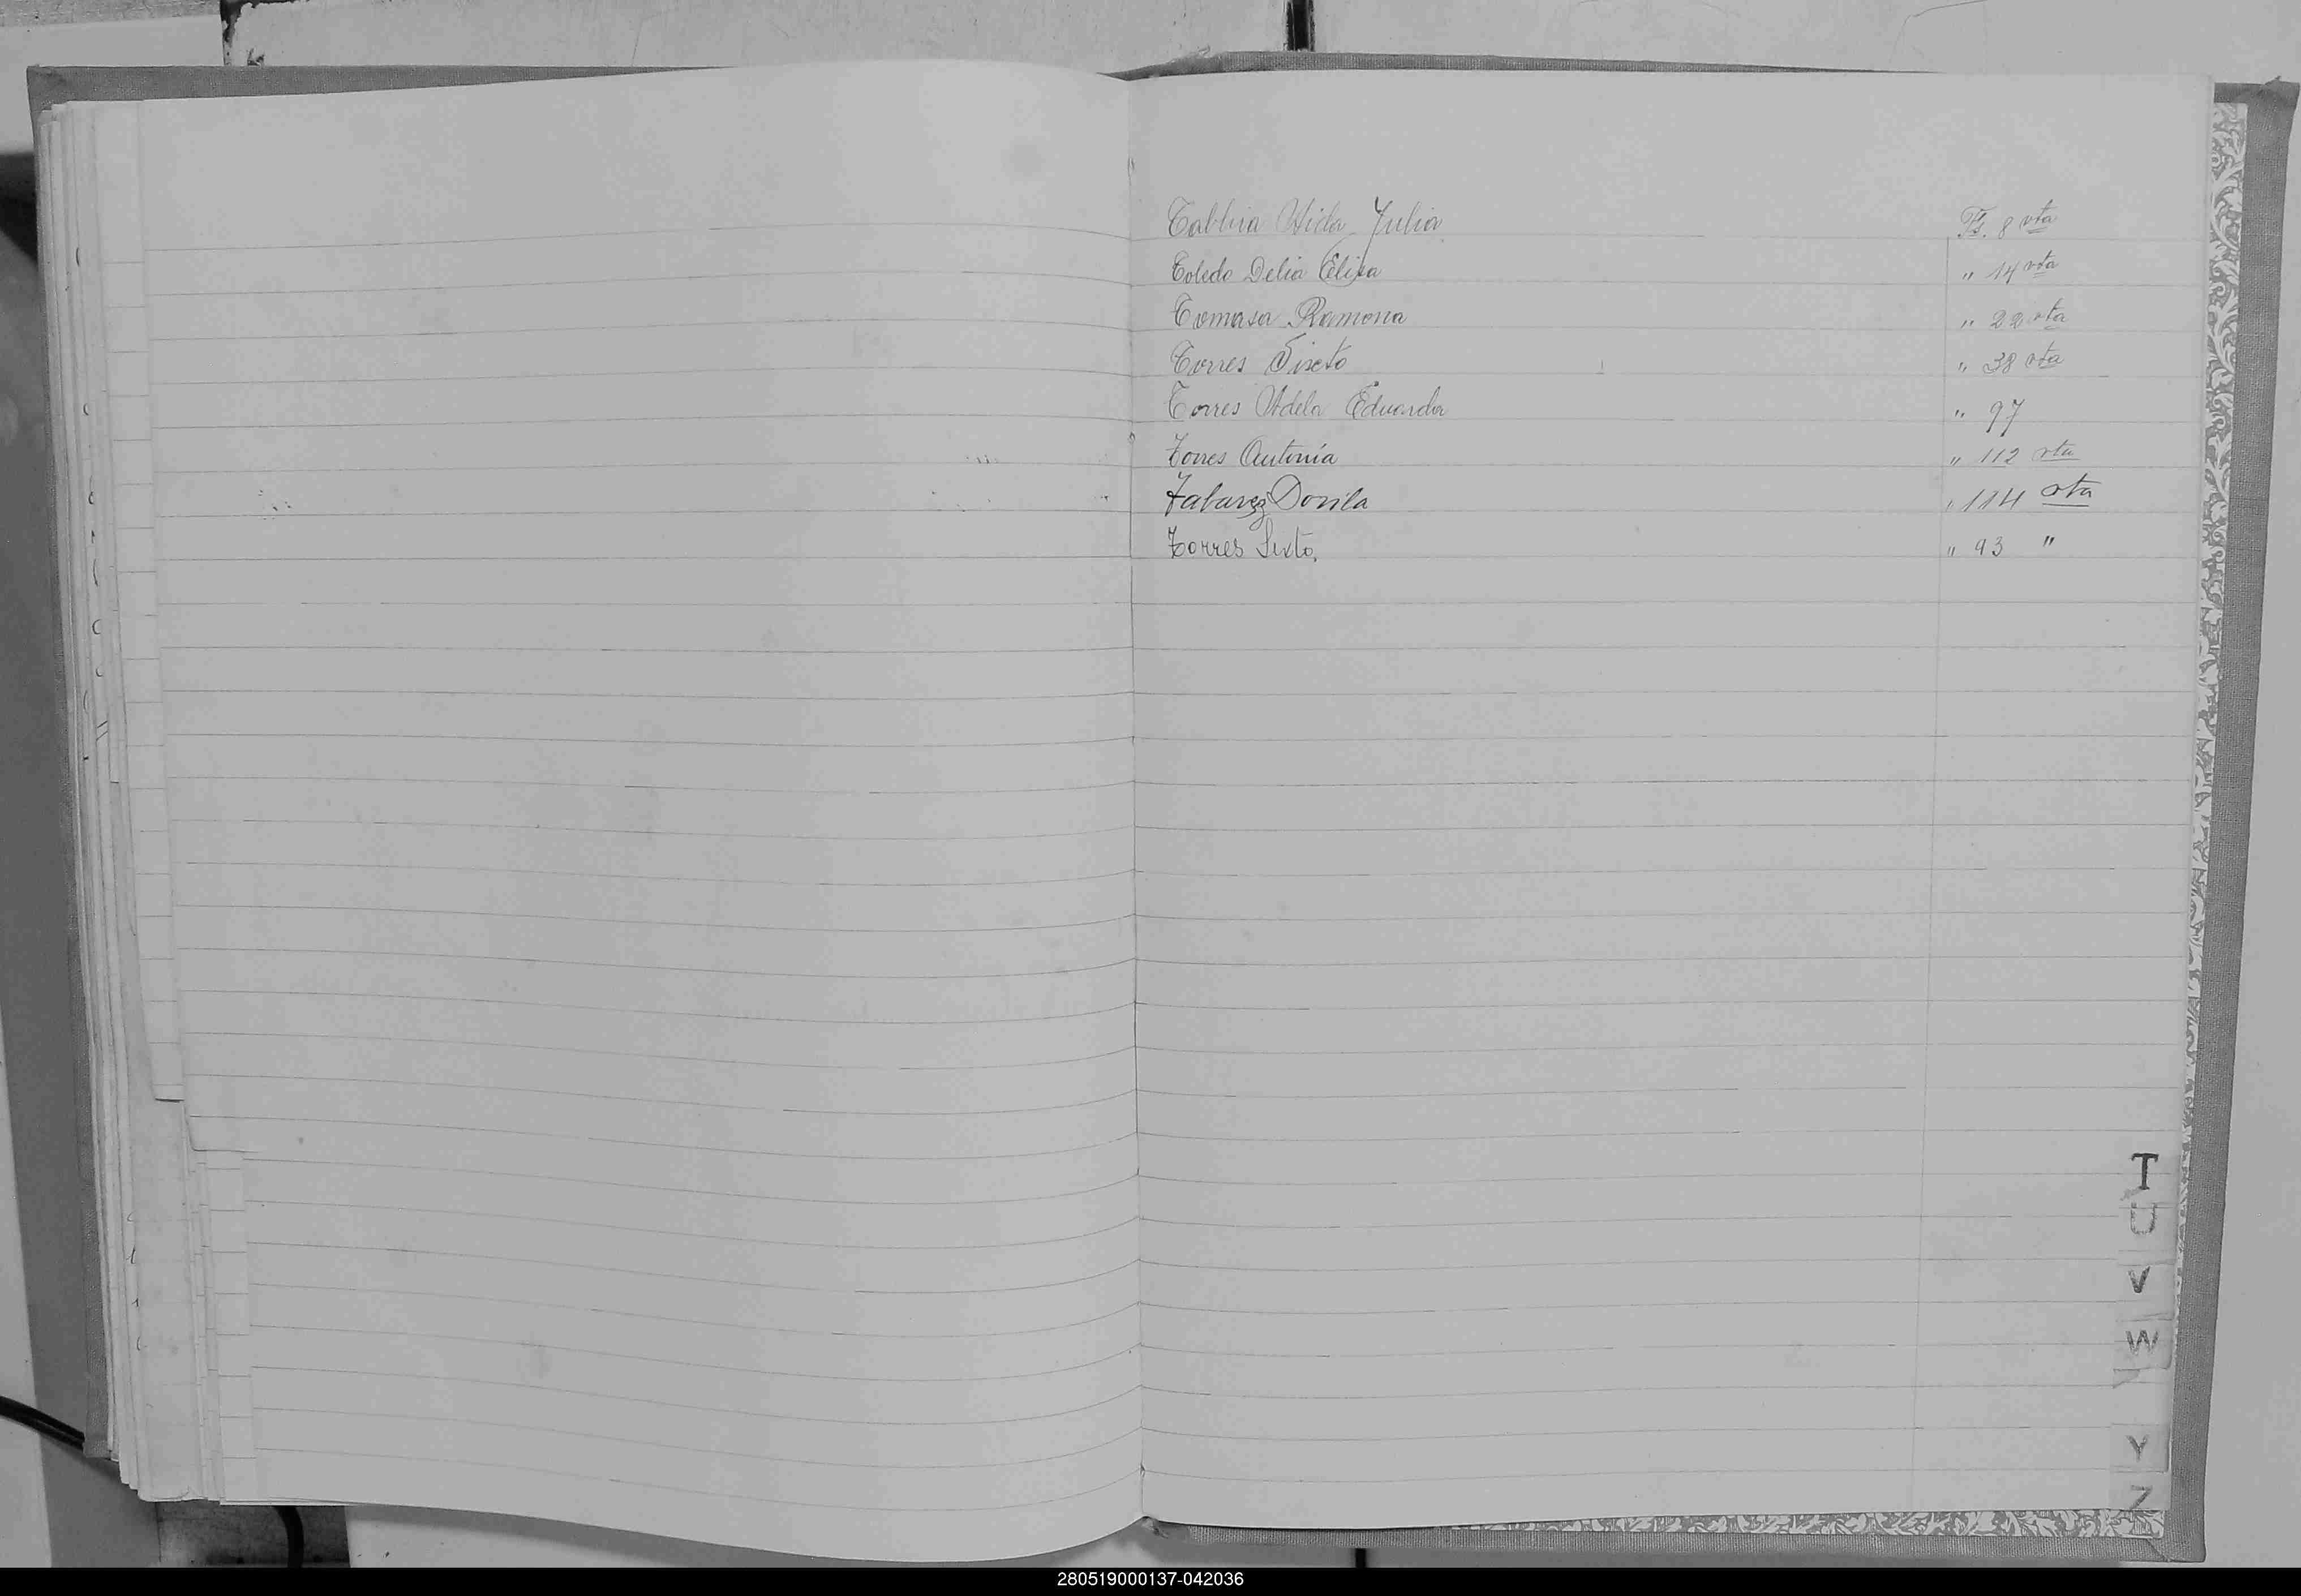 Tabbia Aida Julia Fs. 8 vta
Toledo Delia Elisa " 14 vta
Tomasa Ramona " 22 vta
Torres Sixto " 38 vta
Torres Adela Eduarda " 97
Torres Antonia " 112 vta
Tabarez Dorila " 114 vta
Torres Sixto. " 93 "
T
U
V
W
Y
Z
280519000137-042036